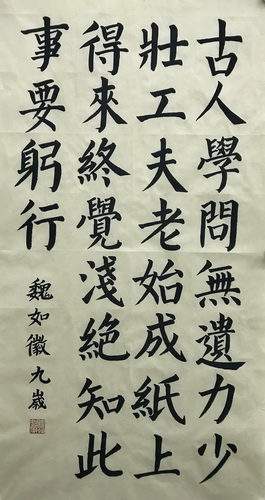 古人學問無遺力少
壯工夫老始成紙上
得來終覺淺絕知此
事要躬行
魏如徽九歲